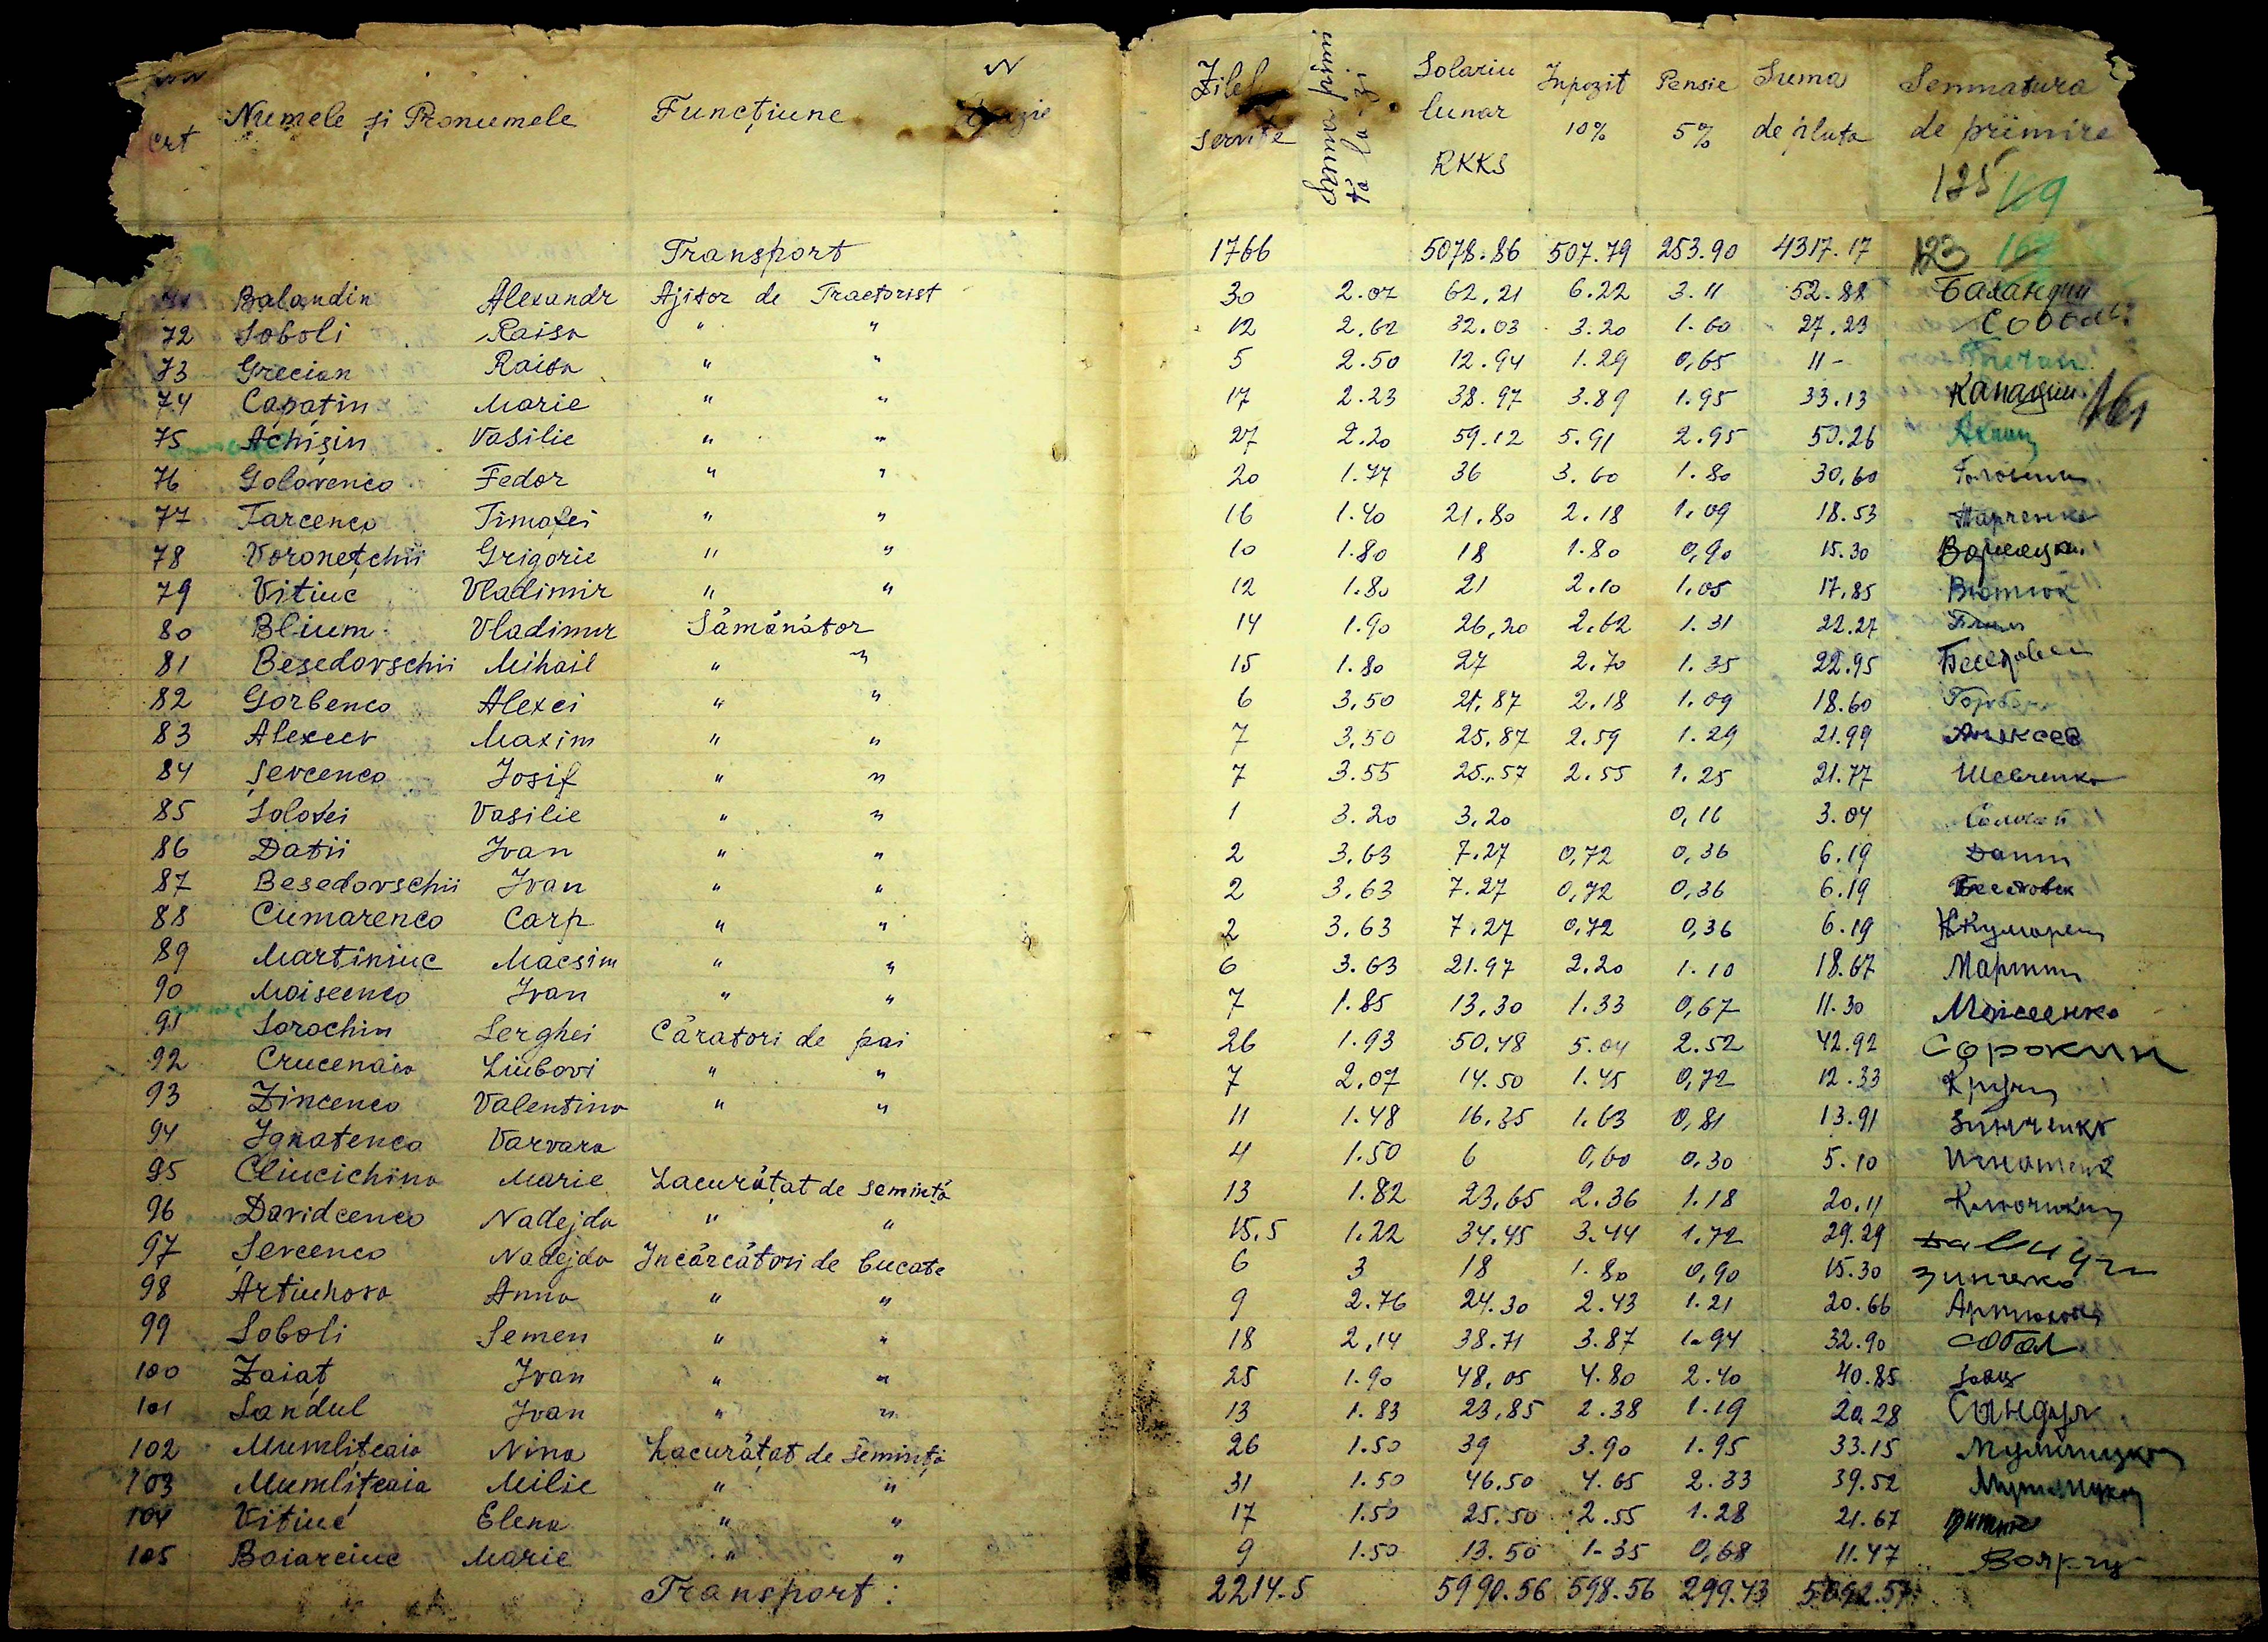 crt Numele și Pronumele Funcțiune Zilel servite Solariu lunar RKKS Inpozit 10% Pensie 5% Suma de pluta Semnatura de primire
125 169
Transport 1766 5078.86 507.79 253.90 4317.17 123
Balandin Alexandr Ajitor de Tractorist 30 2.07 62,21 6.22 3.11 52.88 Баландин
72 Soboli Raisa " " 12 2.62 32.03 3.20 1.60 27.23
73 Grecian Raisa " " 5 2.50 12.94 1.29 0,65 11-
74 Capațin Marie " " 17 2.23 38.97 3.89 1.95 33.13 161
75 Achișin Vasilie " " 27 2.20 59.12 5.91 2.95 50.26
76 Golovenco Fedor " " 20 1.77 36 3.60 1.80 30,60
77 Tarcenco Timofei " " 16 1.40 21.80 2.18 1.09 18.53 Тарченко
78 Voronețchii Grigorie " " 10 1.80 18 1.80 0,90 15.30
79 Vitiuc Vladimir " " 12 1.80 21 2.10 1.05 17,85
80 Blium Vladimir Sămănător 14 1.90 26,20 2.62 1.31 22.27
81 Besedovschii Mihail " " 15 1.80 27 2.70 1.35 22.95
82 Gorbenco Alexei " " 6 3,50 21,87 2.18 1.09 18.60
83 Alexeev Maxim " " 7 3,50 25.87 2.59 1.29 21.99 Алексеев
84 Șevcenco Josif " " 7 3.55 25.57 2.55 1.25 21.77 Шевченко
85 Solovei Vasilie " " 1 3.20 3,20 0,16 3.04
86 Datii Ivan " " 2 3.63 7.27 0,72 0,36 6.19
87 Besedovschii Ivan " " 2 3.63 7.27 0,72 0,36 6.19
88 Cumarenco Carp " " 2 3.63 7.27 0,72 0,36 6.19
89 Martîniuc Macsim " " 6 3.63 21.97 2.20 1.10 18.67
90 Moiseenco Ivan " " 7 1.85 13,30 1.33 0,67 11.30 Моисеенко
91 Sorochin Serghei Căratori de pai 26 1.93 50.48 5.04 2.52 42.92 Сорокин
92 Crucenaia Liubovi " " 7 2.07 14.50 1.45 0,72 12.33
93 Zincenco Valentina " " 11 1.48 16.35 1.63 0,81 13.91 Зинченко
94 Ignatenco Varvara 4 1.50 6 0,60 0,30 5.10
95 Cliucichina Marie Lacurățat de semință 13 1.82 23,65 2.36 1.18 20,11
96 Davidcenco Nadejda " " 15,5 1.22 34.45 3.44 1.72 29.29
97 Șevcenco Nadejda Incărcători de bucate 6 3 18 1.80 0,90 15.30
98 Artiuhova Anna " " 9 2.76 24.30 2.43 1.21 20.66
99 Soboli Semen " " 18 2,14 38.71 3.87 1.94 32.90
100 Zaiaț Ivan " " 25 1.90 48,05 4.80 2.40 40.85
101 Sandul Ivan " " 13 1.83 23,85 2.38 1.19 20.28 Сындул
102 Mumlițcaia Nina Lacurățat de semință 26 1.50 39 3.90 1.95 33.15
103 Mumlițcaia Milie " " 31 1.50 46,50 4.65 2.33 39.52
104 Vitiuc Elena " " 17 1.50 25.50 2.55 1.28 21.67
105 Boiarciuc Marie " " 9 1.50 13.50 1-35 0,68 11.47
Transport: 2214.5 5990.56 598.56 299.43 5092.57